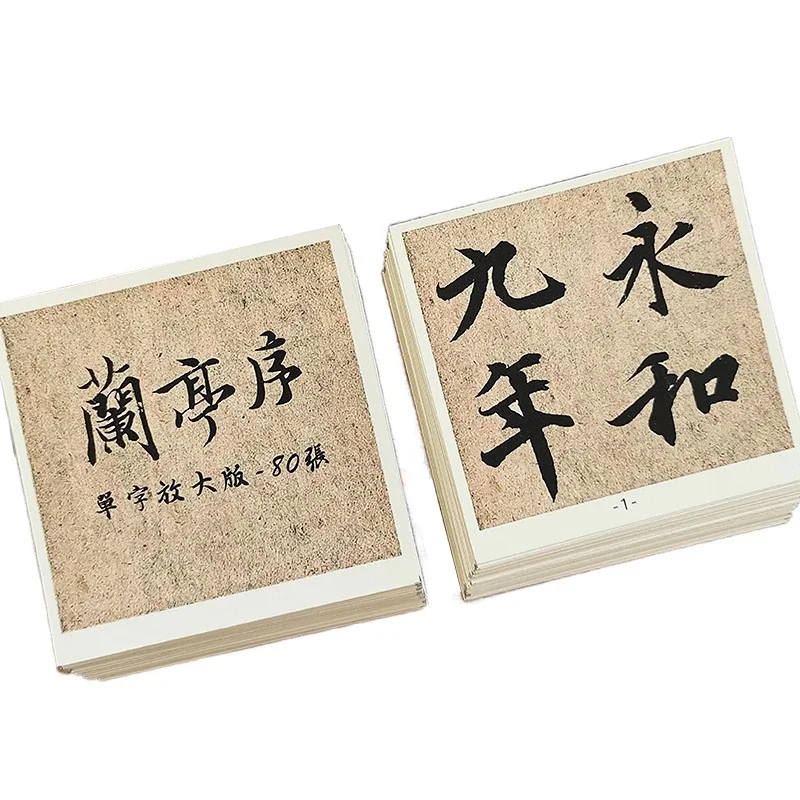 蘭亭序
單字放大版-80張
永和
九年
-1-